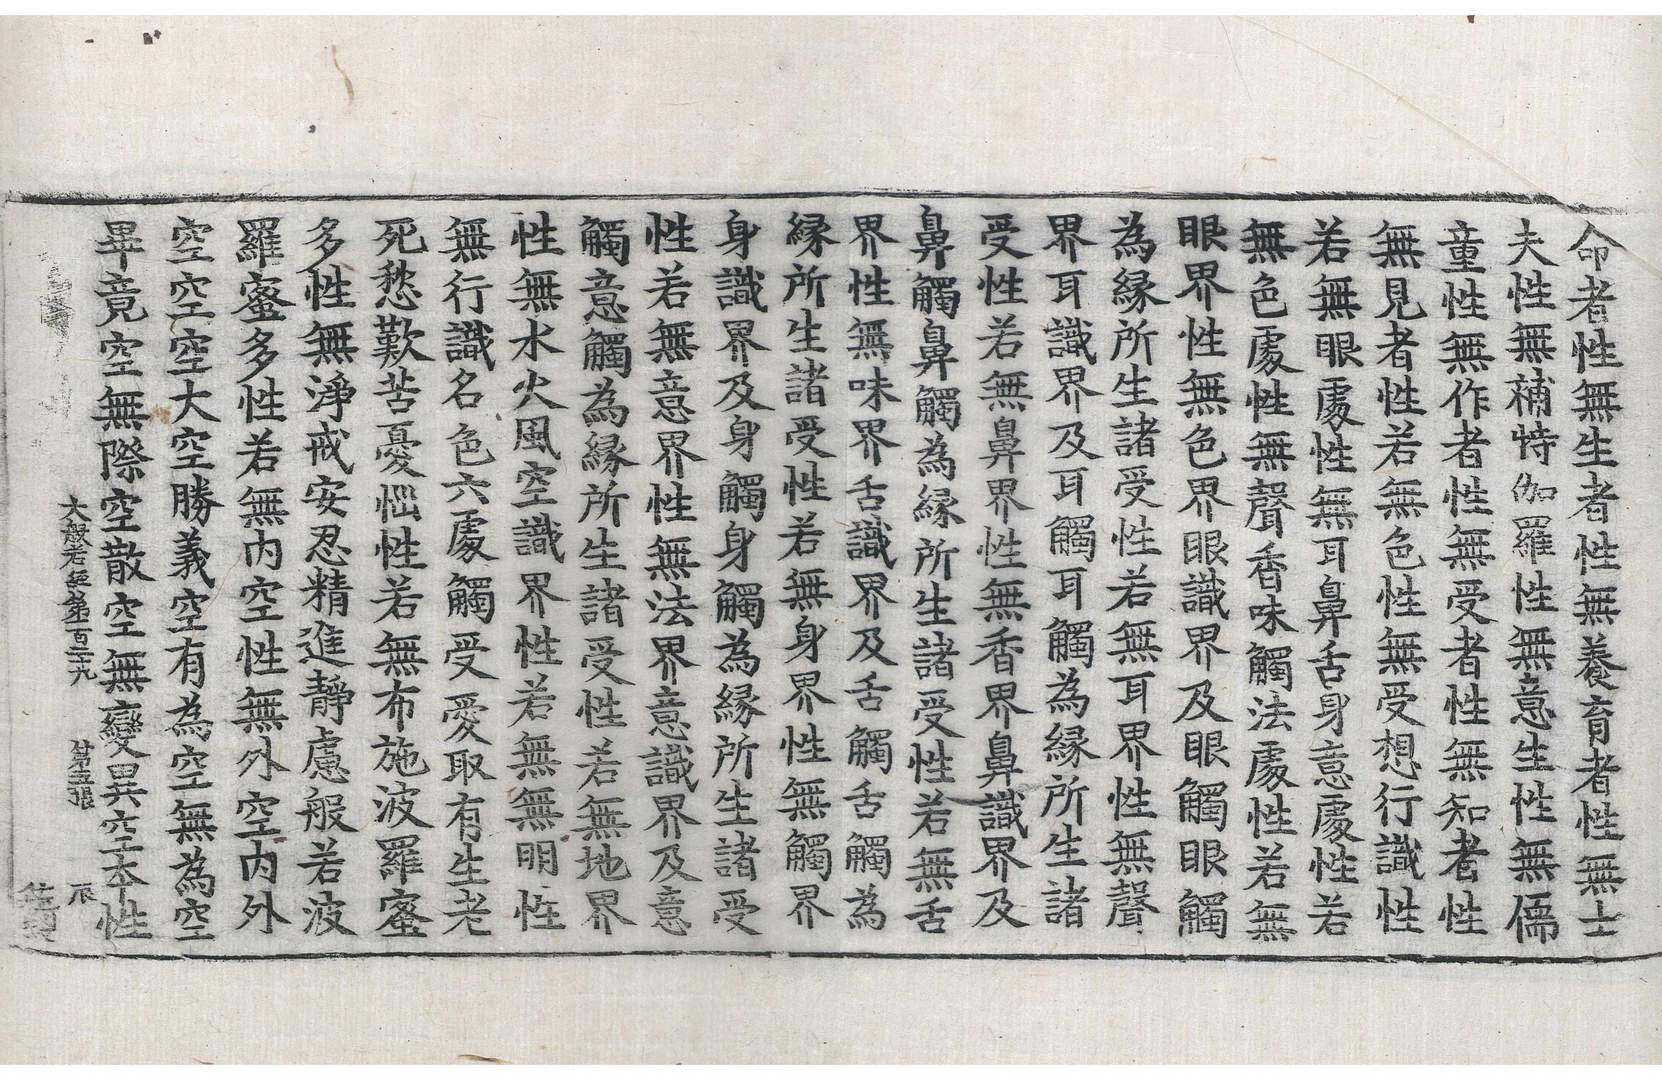 命者性無生者性無養育者性無士
夫性無補特伽羅性無意生性無儒
童性無作者性無受者性無知者性
無見者性若無色性無受想行識性
若無眼處性無耳鼻舌身意處性若
無色處性無聲香味觸法處性若無
眼界性無色界眼識界及眼觸眼觸
為緣所生諸受性若無耳界性無聲
界耳識界及耳觸耳觸為緣所生諸
受性若無鼻界性無香界鼻識界及
鼻觸鼻觸為緣所生諸受性若無舌
界性無味界舌識界及舌觸舌觸為
緣所生諸受性若無身界性無觸界
身識界及身觸身觸為緣所生諸受
性若無意界性無法界意識界及意
觸意觸為緣所生諸受性若無地界
性無水火風空識界性若無無明性
無行識名色六處觸受愛取有生老
死愁歎苦憂惱性若無布施波羅蜜
多性無淨戒安忍精進靜慮般若波
羅蜜多性若無內空性無外空內外
空空空大空勝義空有為空無為空
畢竟空無際空散空無變異空本性
大般若經第百二十九 第五張 辰